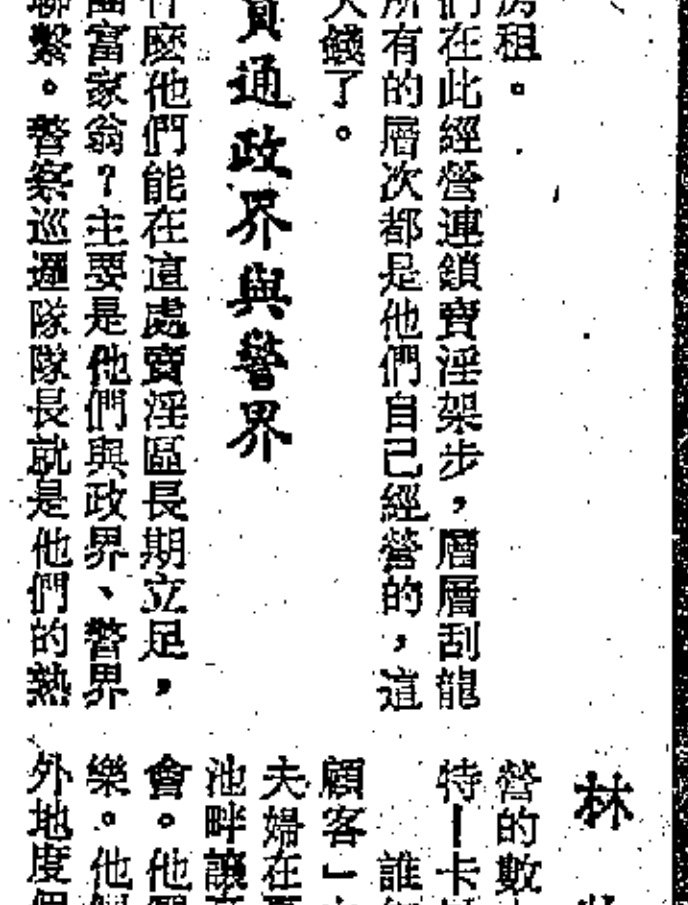 房租。
們在此經營連鎖賣淫架步，層層刮龍
所有的層次都是他們自己經營的，這
錢了。
貫通政界與警界
什麼他們能在這處賣淫區長期立足，
富家翁？主要是他們與政界、警界
聯繫。警察巡邏隊隊長就是他們的熱
林
營的數
特—卡
誰
顧客」
夫婦在
池畔讓
會。他
樂。他
外地度